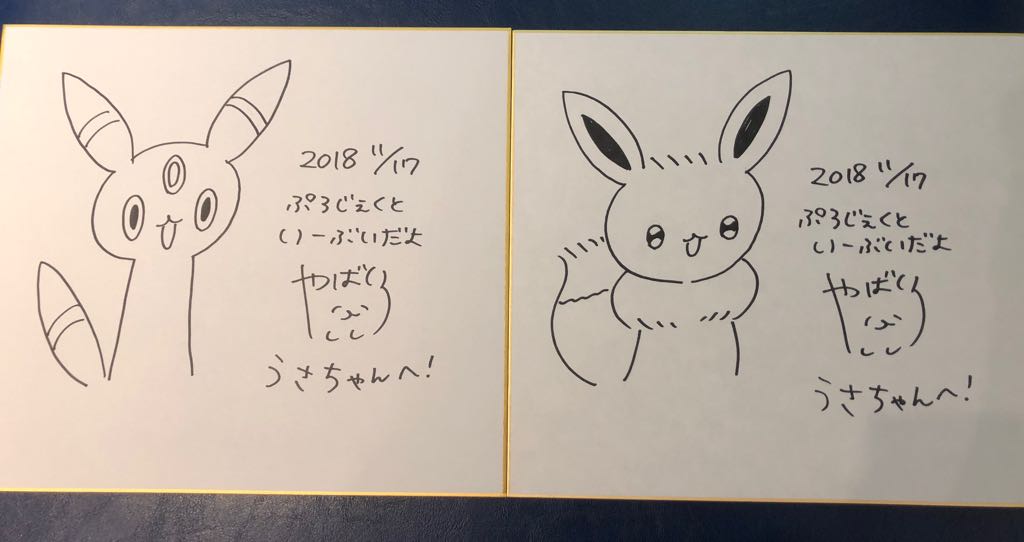 2018 11/17
ぷろじぇくと
いーぶいだよ
やばい
うさちゃんへ!
2018 11/17
ぷろじぇくと
いーぶいだよ
やばい
うさちゃんへ!